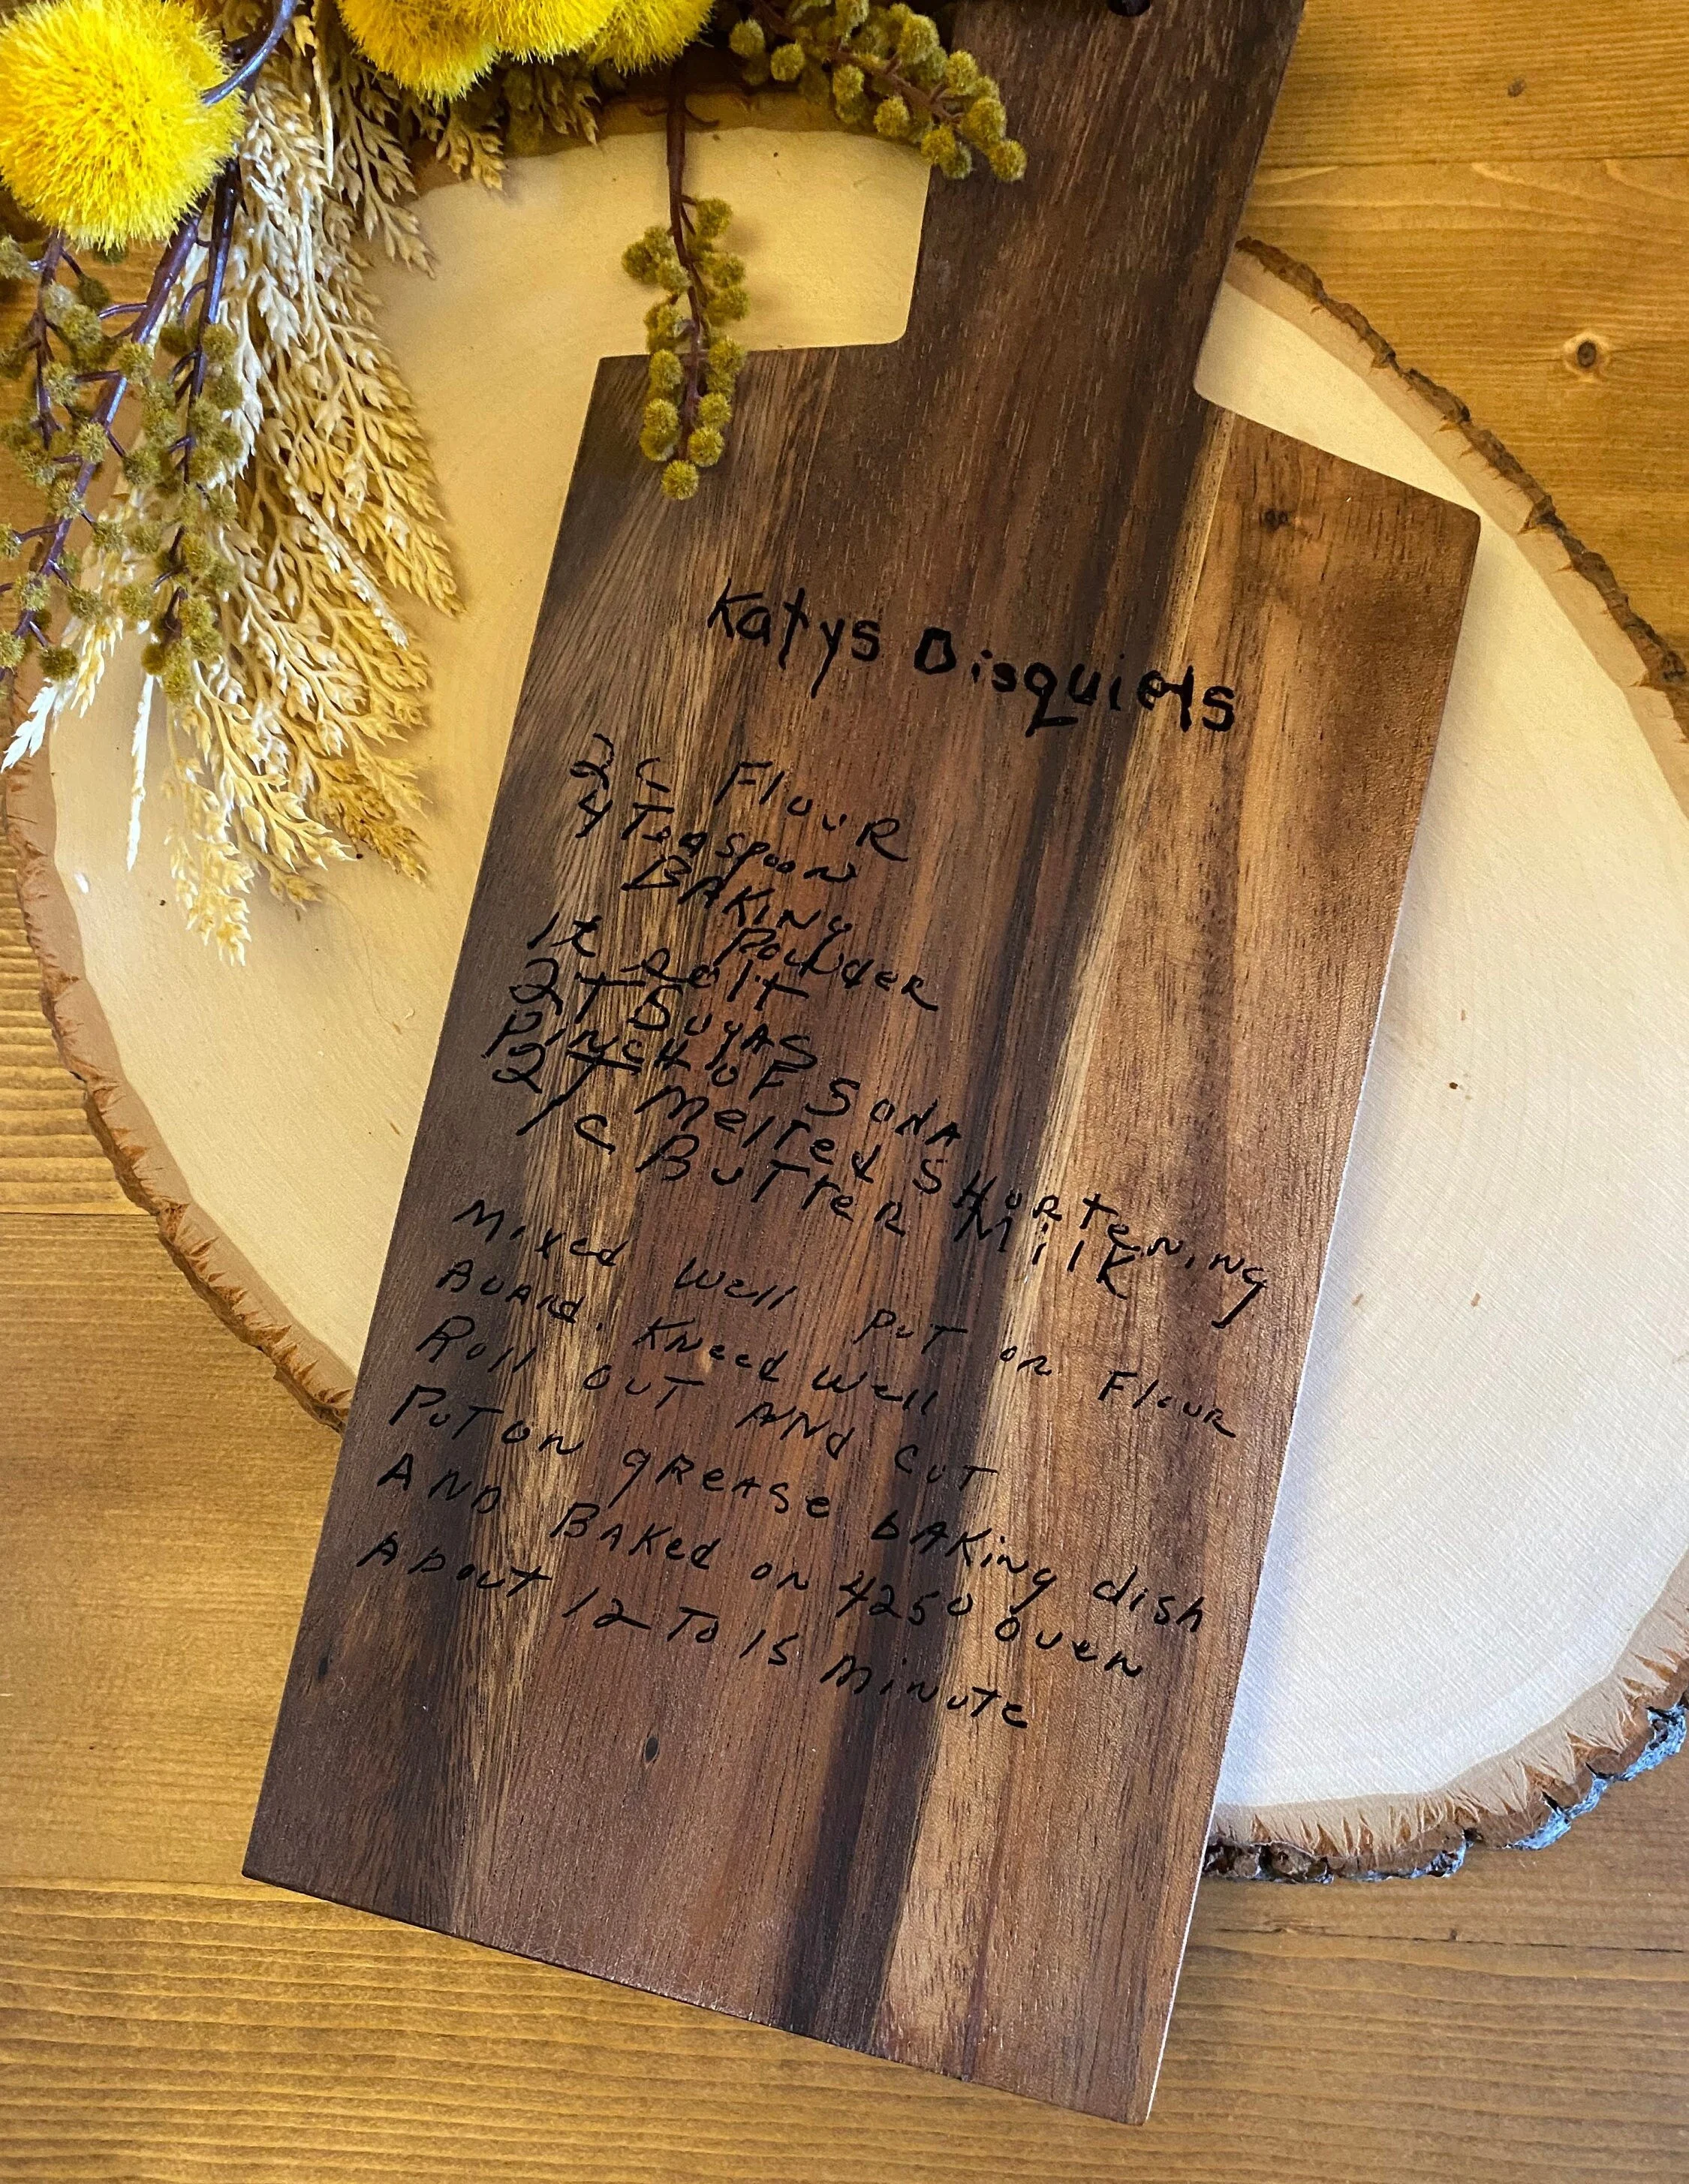 Katys Bisquiets
2 C Flour
4 Teaspoon
Baking
Powder
1t Salt
2T Sugas
Pinch of Soda
2T Melted Shortening
1 C Butter Milk
Mixed well put on Flour
Board. Kneed well
Roll out and cut
Put on grease baking dish
And Baked on 4250 oven
About 12 To 15 minute